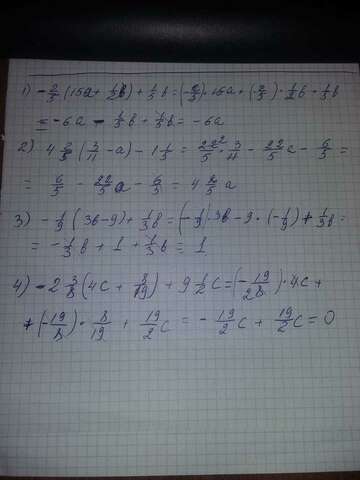 1) -2/5 (15a + 1/2 b) + 1/5 b = (-2/5) · 15a + (2/5) · 1/2 b - 1/5 b
= -6a - 1/5 b + 1/5 b = -6a
2) 4 2/5 (3/11 - a) - 1 1/5 = 22/5 · 3/11 - 22/5 a - 6/5 =
= 6/5 - 22/5 a - 6/5 = 4 2/5 a
3) -1/9 (3b - 9) + 1/3 b = (-1/9) · 3b - 9 · (-1/9) + 1/3 b =
= -1/3 b + 1 + 1/3 b = 1
4) -2 3/8 (4c + 8/19) + 9 1/2 c = (-19/8) · 4c +
+ (-19/8) · 8/19 + 19/2 c = -19/2 c + 19/2 c = 0